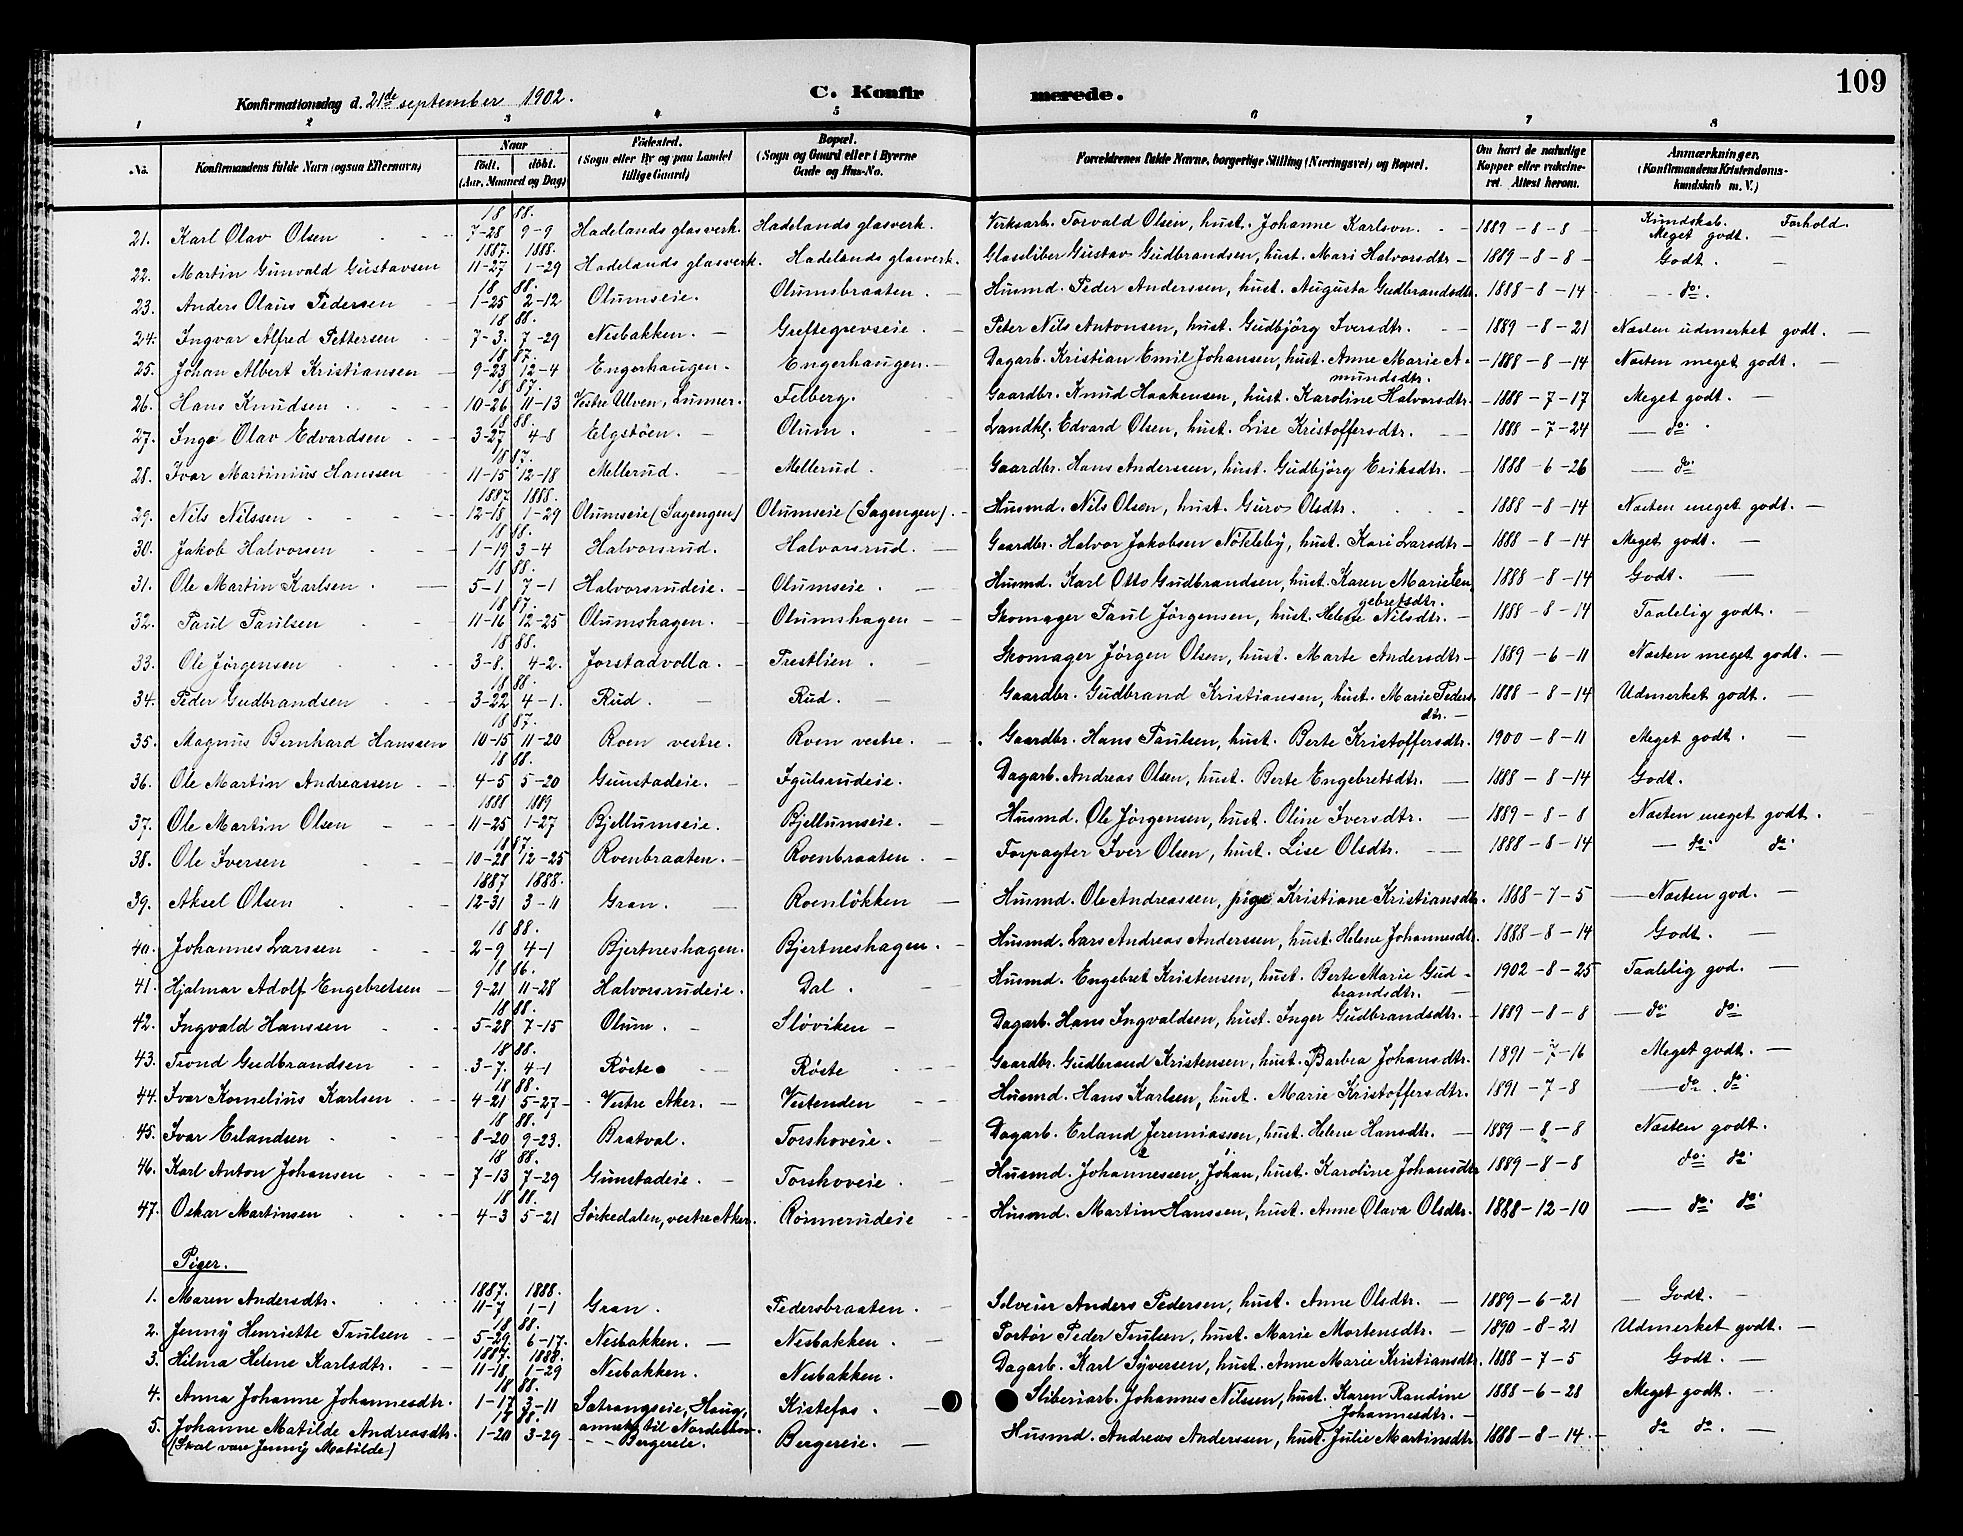 109
Konfirmationsdag d. 21de september 1902. C. Konfirmerede.
1 2 3 4 5 6 7 8
No. Konfirmandens fulde Navn (ogsaa Efternavn) Naar født. døbt. (Aar, Maaned og Dag) Fødested. (Sogn eller By og paa Landet tillige Gaard) Bopæl. (Sogn og Gaard eller i Byerne Gade og Hus-No. Forældrenes fulde Navne, borgerlige Stilling (Næringsvei) og Bopæl. Om havt de naturlige Kopper eller vakcineret. Attest herom. Anmærkninger. (Konfirmandens Kristendomskundskab m. V.)
Kundskab. Forhold.
21. Karl Olav Olsen 1888. 7-28 9-9 Hadelands glasverk. Hadelands glasverk. Verksarb. Torvald Olsen, hust. Johanne Karlson. 1889-8-8 Meget godt. —
22. Martin Gunvald Gustavsen 1887. 11-27 1888. 1-29 Hadelands glasverk. Hadelands glasverk. Glassliber Gustav Gudbrandsen, hust. Mari Halvorsdtr 1889-8-8 Godt. —
23. Anders Olaus Pedersen 1888. 1-25 2-12 Olumseie. Olumsbraaten. Husmd. Peder Anderssen, hust. Augusta Gudbrandsdtr. 1888-8-14 — do.
24. Ingvar Alfred Pettersen 1888. 7-3. 7-29 Nesbakken. Greftegrevseie. Peter Nils Antonsen, hust. Gudbjörg Iversdtr. 1889-8-21 Næsten udmerket godt. —
25. Johan Albert Kristiansen 1887. 9-23 12-4 Engerhaugen. Engerhaugen. Dagarb. Kristian Emil Johansen, hust. Anne Marie Amundsdtr. 1888-8-14 Næsten meget godt. —
26. Hans Knudsen 1887. 10-26 11-13 Vestre Ulven, Lunner. Felberg. Gaardbr. Knud Haakensen, hust. Karoline Halvorsdtr. 1888-7-17 Meget godt. —
27. Inge Olav Edvardsen 1888. 3-27 4-8 Elgstøen. Olum. Landhl. Edvard Olsen, hust. Lise Kristoffersdtr. 1888-7-24 — do.
28. Ivar Martinius Hanssen 1887. 11-15 12-18 Mellerud. Mellerud. Gaardbr. Hans Anderssen, hust. Gudbjörg Eriksdtr. 1888-6-26 — do
29. Nils Nilssen 1887. 12-18 1888. 1-29 Olumseie (Sagengen) Olumseie (Sagengen). Husmd. Nils Olsen, hust. Guro Olsdtr. 1888-8-14 Næsten meget godt. —
30. Jakob Halvorsen 1888. 1-19 3-4 Halvorsrud. Halvorsrud. Gaardbr. Halvor Jakobsen Nökleby, hust. Kari Larsdtr 1888-8-14 Meget godt. —
31. Ole Martin Karlsen 1888. 5-1 7-1 Halvorsrudeie. Olumseie. Husmd. Karl Otto Gudbrandsen, hust. Karen Marie Engebretsdtr. 1888-8-14 Godt. —
32. Paul Paulsen 1887. 11-16 12-25 Olumshagen. Olumshagen Skomager Paul Jørgensen, hust. Helene Nilsdtr. 1888-8-14 Taalelig godt. —
33. Ole Jørgensen 1888. 3-8. 4-2. Jorstadvolla. Prestlien. Skomager Jörgen Olsen, hust. Marte Andersdtr 1889-6-11 Næsten meget godt. —
34. Peder Gudbrandsen 1888. 3-22 4-1. Rud. Rud. Gaardbr. Gudbrand Kristiansen, hust. Marie Pedersdtr. 1888-8-14 Udmerket godt. —
35. Magnus Bernhard Hanssen 1887. 10-15 11-20 Roen vestre. Roen vestre. Gaardbr. Hans Paulsen, hust. Berte Kristoffersdtr. 1900-8-11 Meget godt. —
36. Ole Martin Andreassen 1888. 4-5 5-20 Gunstadeie. Igulsrudeie. Dagarb. Andreas Olsen, hust. Berte Engebretsdtr. 1888-8-14 Godt.
37. Ole Martin Olsen 1888 11-25 1889 1-27 Bjellumseie. Bjellumseie. Husmd. Ole Jørgensen, hust. Oline Iversdtr. 1889-8-8 Næsten meget godt.
38. Ole Iversen 1887. 10-28 12-25 Roenbraaten. Roenbraaten. Forpagter Iver Olsen, hust. Lise Olsdtr. 1888-8-14 — do. do.
39. Aksel Olsen 1887 12-31 1888. 3-11 Gran. Roenlökken Husmd. Ole Andreassen, pige Kristiane Kristiansdtr. 1888-7-5 Næsten god. —
40. Johannes Larssen 1888. 2-9 4-1 Bjertneshagen. Bjertneshagen. Husmd. Lars Andreas Anderssen, hust. Helene Johannesdtr. 1888-8-14 Godt. —
41. Hjalmar Adolf Engebretsen 1886. 9-21 11-28 Halvorsrudeie. Dal. Husmd. Engebret Kristensen, hust. Berte Marie Gudbrandsdtr. 1902-8-25 Taalelig god. —
42. Ingvald Hanssen 1888. 5-28 7-15 Olum. Sløviken Dagarb. Hans Ingvaldsen, hust. Inger Gudbrandsdtr. 1889-8-8 — do do.
43. Trond Gudbrandsen 1888. 3-7. 4-1 Röste Röste Gaardbr. Gudbrand Kristensen, hust. Barbra Johansdtr. 1891-7-16 Meget godt. —
44. Ivar Kornelius Karlsen 1888. 4-21 5-27 Vestre Aker. Vestenden Husmd. Hans Karlsen, hust. Marie Kristoffersdtr. 1891-7-8 — do. do
45. Ivar Erlandsen 1888. 8-20 9-23. Bratval. Torshoveie. Dagarb. Erland Jeremiassen, hust. Helene Hansdtr. 1889-8-8 Næsten godt.
46. Karl Anton Johansen 1888. 7-13 7-29 Gunstadeie. Torshoveie. Husmd. Johannessen, Johan, hust. Karoline Johansdtr 1889-8-8 do. do.
47. Oskar Martinsen 1888. 4-3 5-21 Sörkedalen, vestre Aker. Rönnerudeie Husmd. Martin Hanssen, hust. Anne Olava Olsdtr. 1888-12-10 — do. do.
Piger.
1. Maren Andersdtr. 1887. 11-7 1888. 1-1 Gran. Pedersbraaten. Anders Pedersen, hust. Anne Olsdtr. 1889-6-21 Godt. —
2. Jenny Henriette Trulsen 1888. 5-29 6-17. Nesbakken. Nesbakken. Portør Peder Trulsen, hust. Marie Mortensdtr. 1890-8-21 Udmerket godt. —
3. Hilma Helene Karlsdtr. 1887. 11-18. 1888. 1-29 Nesbakken. Nesbakken. Dagarb. Karl Syversen, hust. Anne Marie Kristiansdtr. 1888-7-5 Godt. —
4. Anna Johanne Johannesdtr. 1888. 1-17 3-11 Satrangseie, Haug, anneks til Norderhov. Kistefos. Sliberiarb. Johannes Nilsen, hust. Karen Randine Johannesdtr. 1888-6-28 Meget godt.
5. Johanne Matilde Andreasdtr. (Skal være Jenny Matilde) 1888. 1-20 3-29 Bergereie. Bergereie. Husmd. Andreas Anderssen, hust. Julie Martinsdtr 1888-8-14 do do. —